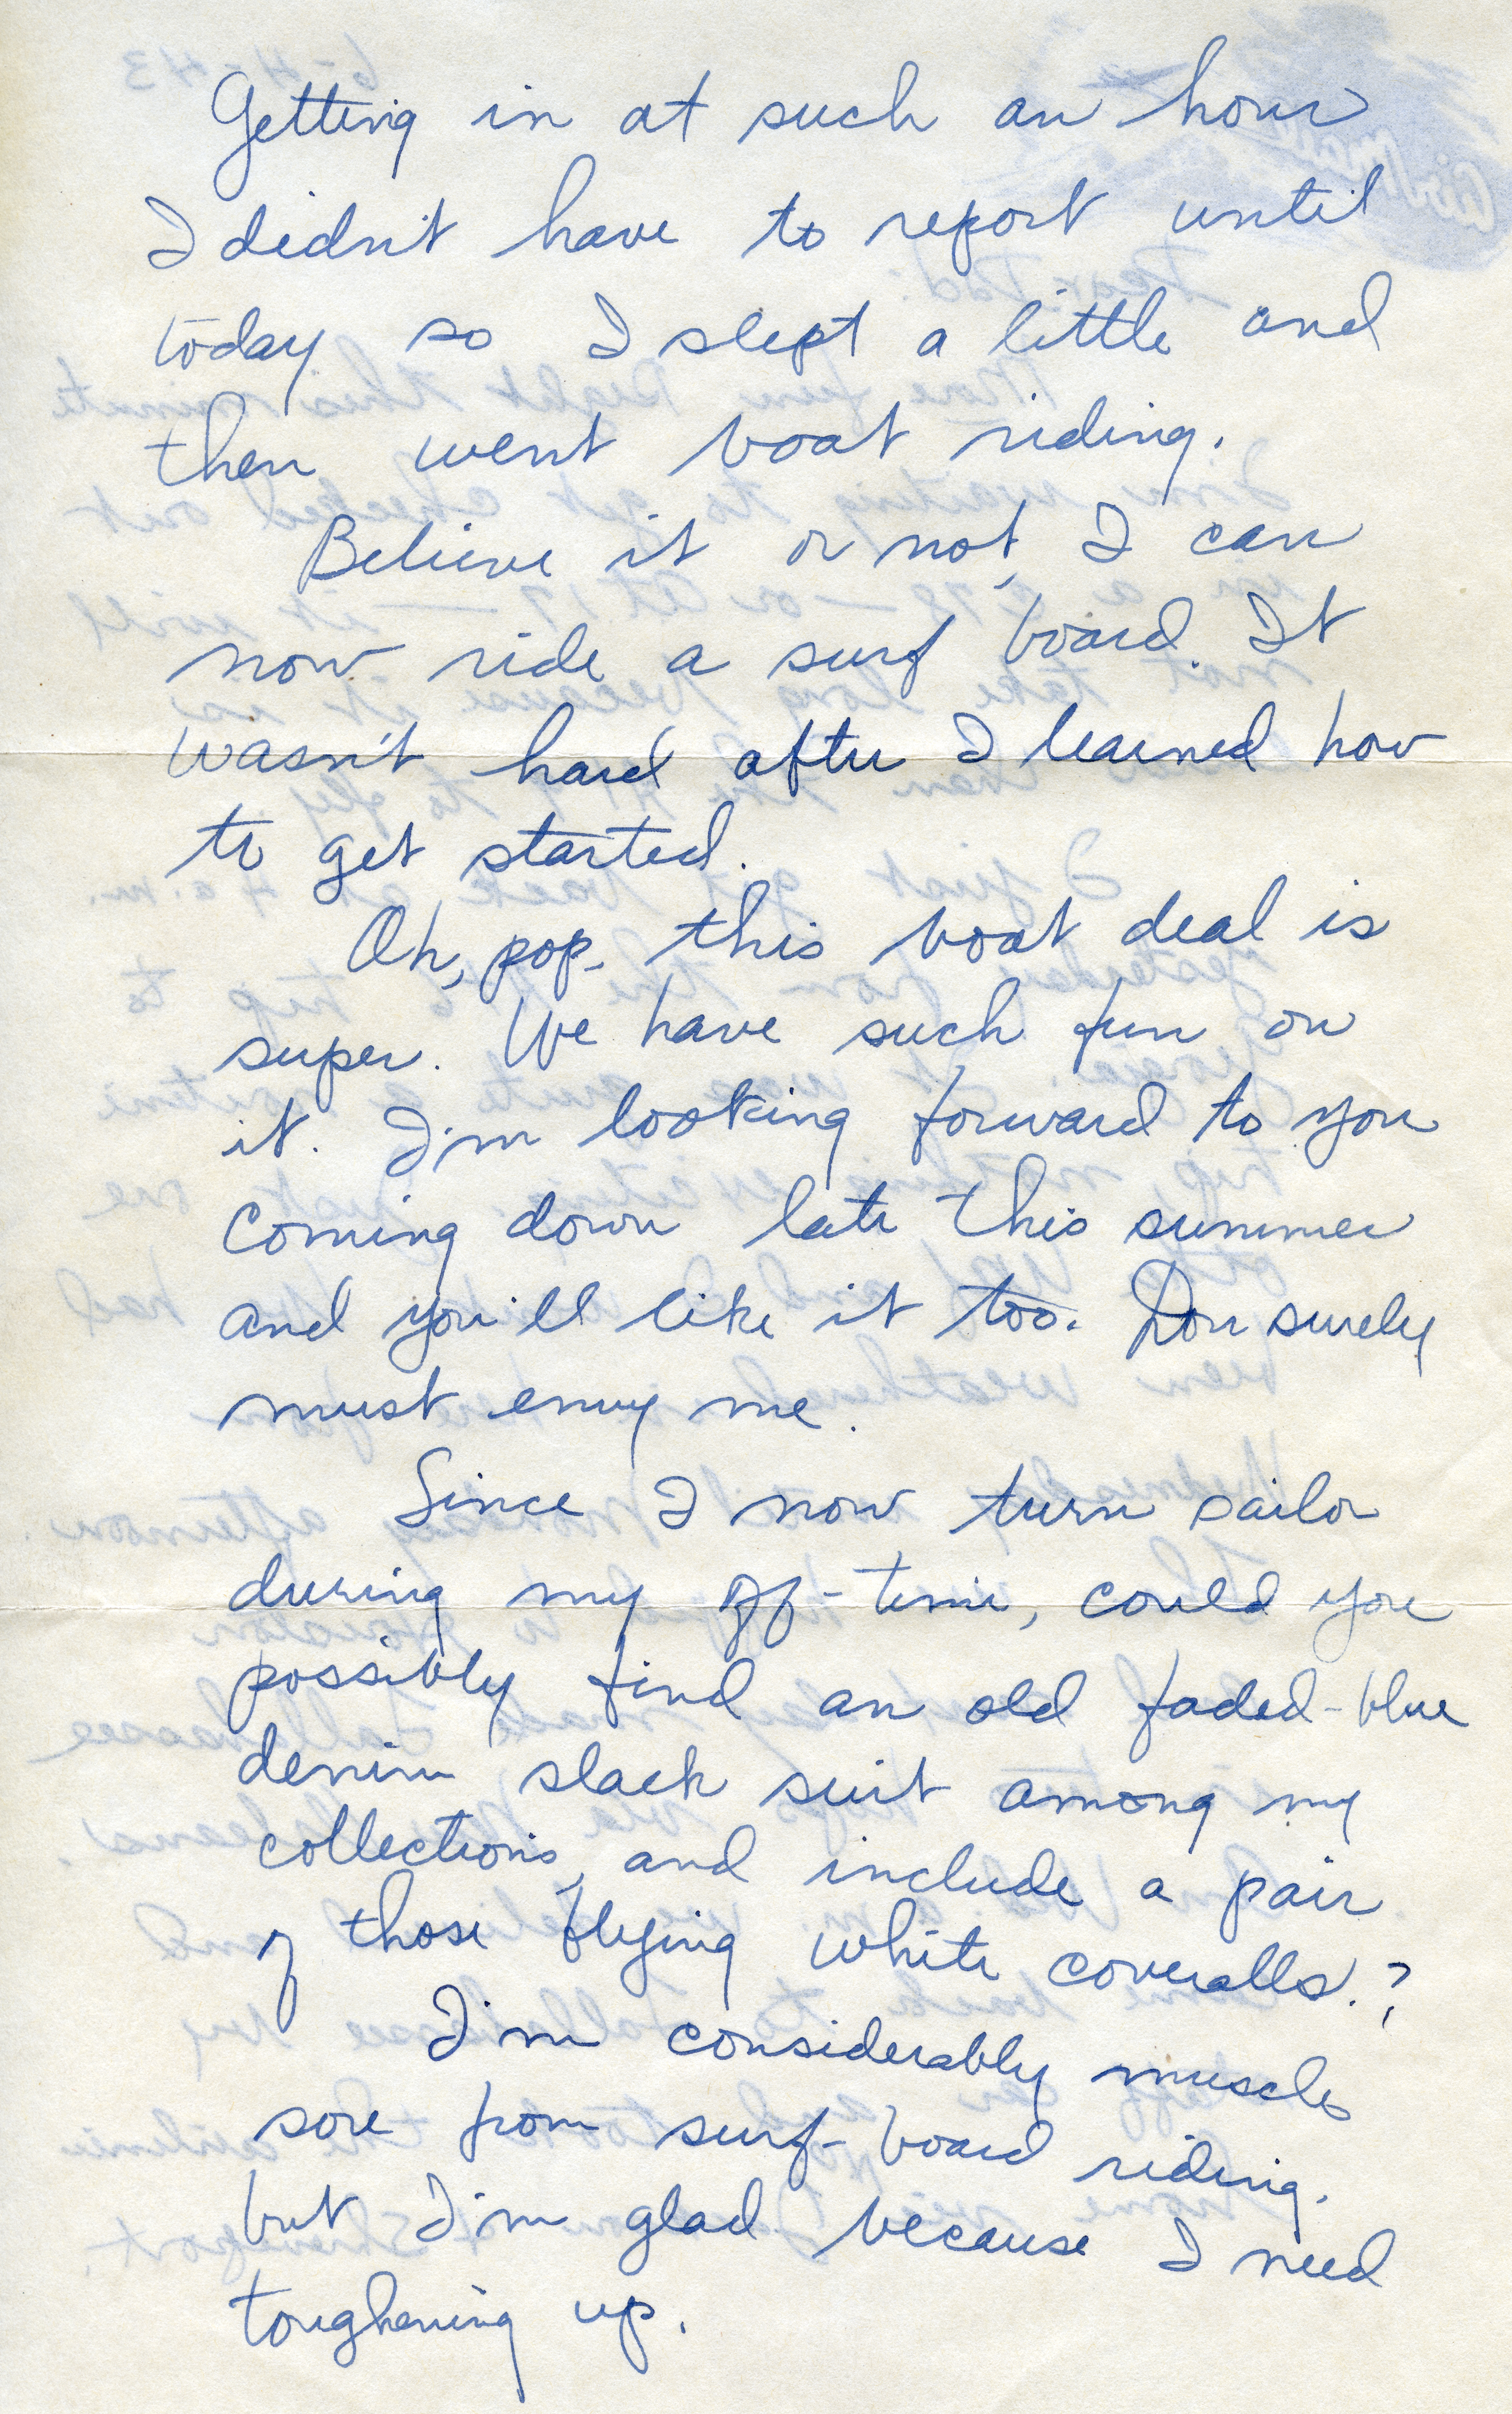 Getting in at such an hour
I didn't have to report until
today so I slept a little and
then went boat riding.
Believe it or not, I can
now ride a surf board. It
wasn't hard after I learned how
to get started.
Oh, pop, this boat deal is
super. We have such fun on
it. I'm looking forward to you
coming down late this summer
and you'll like it too. Don surely
must envy me.
Since I now turn sailor
during my off-time, could you
possibly find an old faded-blue
denim slack suit among my
collections, and include a pair
of those flying white coveralls.?
I'm considerably muscle
sore from surf-board riding,
but I'm glad because I need
toughening up.